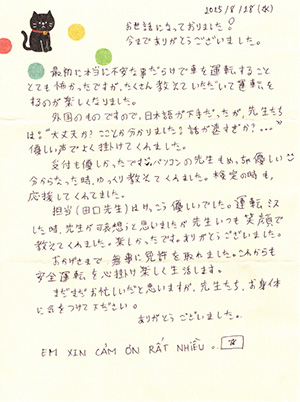 2025/8/28(水)
お世話になっておりました!
今までありがとうございました。
最初に本当に不安な事だらけで車を運転すること
とても怖かったですが、たくさん教えていただいて運転を
するのが楽しくなりました。
外国のものですので、日本語が下手だったが、先生たち
は"大丈夫か?ここから分かりました?話が速すぎか?..."
優しい声でよく掛けてくれました。
受付も優しかったです。パソコンの先生もめっちゃ優しい
分からなった時、ゆっくり教えてくれました。検定の時も、
応援してくれてました。
担当(田口先生)はけっこう優しいでした。運転ミス
した時、先生が可哀想と思いましたが先生いつも笑顔で
教えてくれました。楽しかったです。ありがとうございました。
おかげさまで、無事に免許を取れました。これからも
安全運転を心掛け楽しく生活します。
まだまだお忙しいだと思いますが、先生たち、お身体
に気をつけてください。
ありがとうございました。
EM XIN CẢM ƠN RẤT NHIỀU。